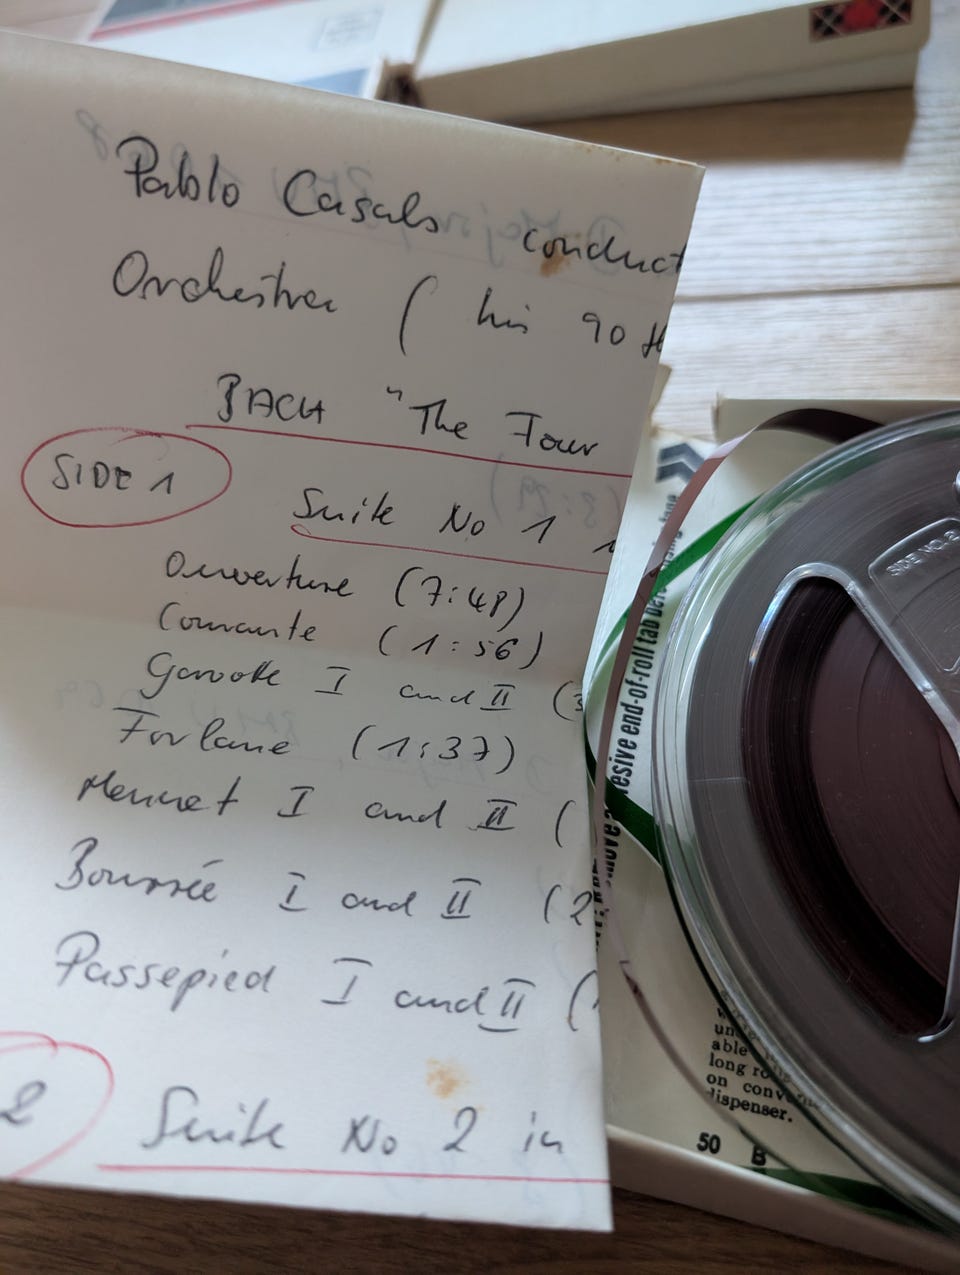 Pablo Casals conduct
Orchestra ( his 90 th
BACH "The Four
SIDE 1
Suite No 1
Ouverture (7:48)
Courante (1:56)
Gavotte I and II (3
Forlane (1:37)
Menuet I and II (
Bourrée I and II (2
Passepied I and II (
2
Suite No 2 in
SIDE NO. 2
esive end-of-roll tab
able
long
on
dispenser.
50 B